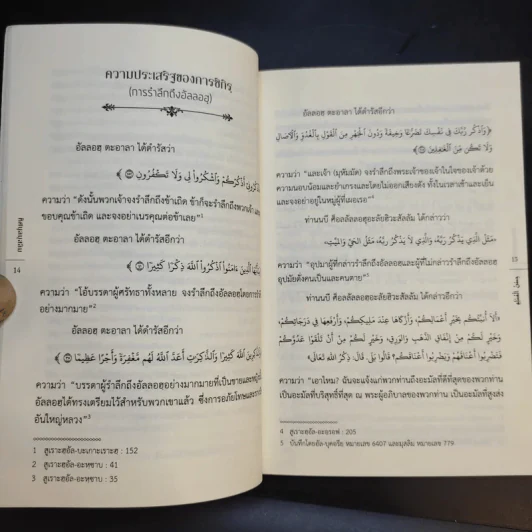 ความประเสริฐของการซิกิรฺ
(การรำลึกถึงอัลลอฮฺ)
อัลลอฮฺ ตะอาลา ได้ดำรัสว่า
أَذْكُرْكُمْ وَاشْكُرُوا لِي وَلَا تَكْفُرُونِ
ความว่า “ดังนั้นพวกเจ้าจงรำลึกถึงข้าเถิด ข้าก็จะรำลึกถึงพวกเจ้า และจง
ขอบคุณข้าเถิด และจงอย่าเนรคุณต่อข้าเลย”1
อัลลอฮฺ ตะอาลา ได้ดำรัสอีกว่า
الَّذِينَ ءَامَنُوا اذْكُرُوا اللَّهَ ذِكْرًا كَثِيرًا
ความว่า “โอ้บรรดาผู้ศรัทธาทั้งหลาย จงรำลึกถึงอัลลอฮฺโดยการรำ
อย่างมากมาย”2
อัลลอฮฺ ตะอาลา ได้ดำรัสอีกว่า
اللَّهَ كَثِيرًا وَالذَّاكِرَاتِ أَعَدَّ اللَّهُ لَهُم مَّغْفِرَةً وَأَجْرًا عَظِيمًا
ความว่า “บรรดาผู้รำลึกถึงอัลลอฮฺอย่างมากมายที่เป็นชายและหญิงนั้น
อัลลอฮฺได้ทรงเตรียมไว้สำหรับพวกเขาแล้ว ซึ่งการอภัยโทษและรางวัล
อันใหญ่หลวง”3
1 สูเราะฮฺอัล-บะเกาะเราะฮฺ : 152
2 สูเราะฮฺอัล-อะหฺซาบ : 41
3 สูเราะฮฺอัล-อะหฺซาบ : 35
14
อัลลอฮฺ ตะอาลา ได้ดำรัสอีกว่า
﴿وَاذْكُر رَّبَّكَ فِي نَفْسِكَ تَضَرُّعًا وَخِيفَةً وَدُونَ الْجَهْرِ مِنَ الْقَوْلِ بِالْغُدُوِّ وَالْآصَالِ
وَلَا تَكُن مِّنَ الْغَافِلِينَ﴾
ความว่า “และเจ้า (มุหัมมัด) จงรำลึกถึงพระเจ้าของเจ้าในใจของเจ้าด้วย
ความนอบน้อมและยำเกรงและโดยไม่ออกเสียงดัง ทั้งในเวลาเช้าและเย็น
และจงอย่าอยู่ในหมู่ผู้ที่เผอเรอ”4
ท่านนบี ศ็อลลัลลอฮุอะลัยฮิวะสัลลัม ได้กล่าวว่า
«مَثَلُ الَّذِي يَذْكُرُ رَبَّهُ، وَالَّذِي لَا يَذْكُرُ رَبَّهُ، مَثَلُ الْحَيِّ وَالْمَيِّتِ»
ความว่า “อุปมาผู้ที่กล่าวรำลึกถึงอัลลอฮฺและผู้ที่ไม่กล่าวรำลึกถึงอัลลอฮฺ
อุปมัยดั่งคนเป็นและคนตาย”5
ท่านนบี ศ็อลลัลลอฮุอะลัยฮิวะสัลลัม ได้กล่าวอีกว่า
«أَلَا أُنَبِّئُكُمْ بِخَيْرِ أَعْمَالِكُمْ، وَأَزْكَاهَا عِنْدَ مَلِيكِكُمْ، وَأَرْفَعِهَا فِي دَرَجَاتِكُمْ،
وَخَيْرٍ لَكُمْ مِنْ إِنْفَاقِ الذَّهَبِ وَالْوَرِقِ، وَخَيْرٍ لَكُمْ مِنْ أَنْ تَلْقَوْا عَدُوَّكُمْ
فَتَضْرِبُوا أَعْنَاقَهُمْ وَيَضْرِبُوا أَعْنَاقَكُمْ؟ قَالُوا بَلَى. قَالَ: ذِكْرُ اللَّهِ تَعَالَى»
ความว่า “เอาไหม? ฉันจะแจ้งแก่พวกท่านถึงอะมัลที่ดีที่สุดของพวกท่าน
เป็นอะมัลที่บริสุทธิ์ที่สุด ณ พระผู้อภิบาลของพวกท่าน เป็นอะมัลที่สูงส่ง
4 สูเราะฮฺอัล-อะอฺรอฟ : 205
5 บันทึกโดยอัล-บุคอรีย์ หมายเลข 6407 และมุสลิม หมายเลข 779